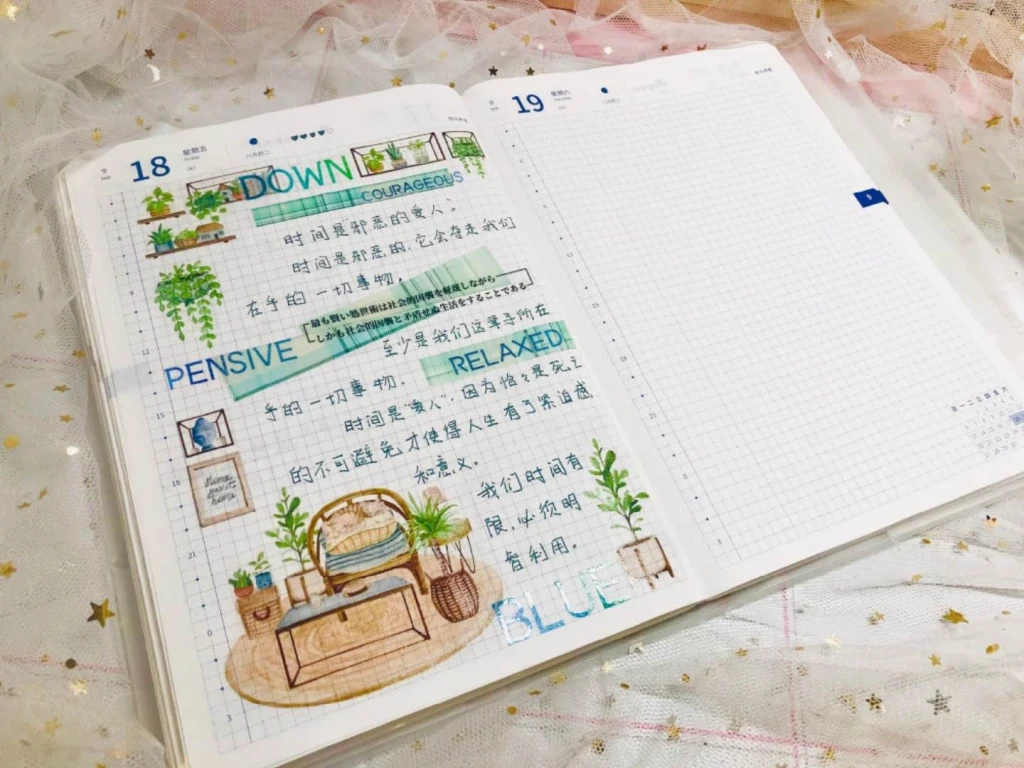 9
18
星期五
八月初二
DOWN
COURAGEOUS
时间是"邪恶的爱人"。
时间是邪恶的,它会夺走我们
在乎的一切事物。
最も賢い処世術は社会的因襲を軽蔑しながら
しかも社会的因襲と矛盾せぬ生活をすることである
至少是我们这辈子所在
PENSIVE
RELAXED
乎的一切事物。
时间是"爱人",因为恰々是死亡
的不可避免才使得人生有了紧迫感
和意义。
我们时间有
限,必须明
智利用。
home
sweet
home
BLUE
12
15
18
21
0
3
9
19
星期六
9
日 一 二 三 四 五 六